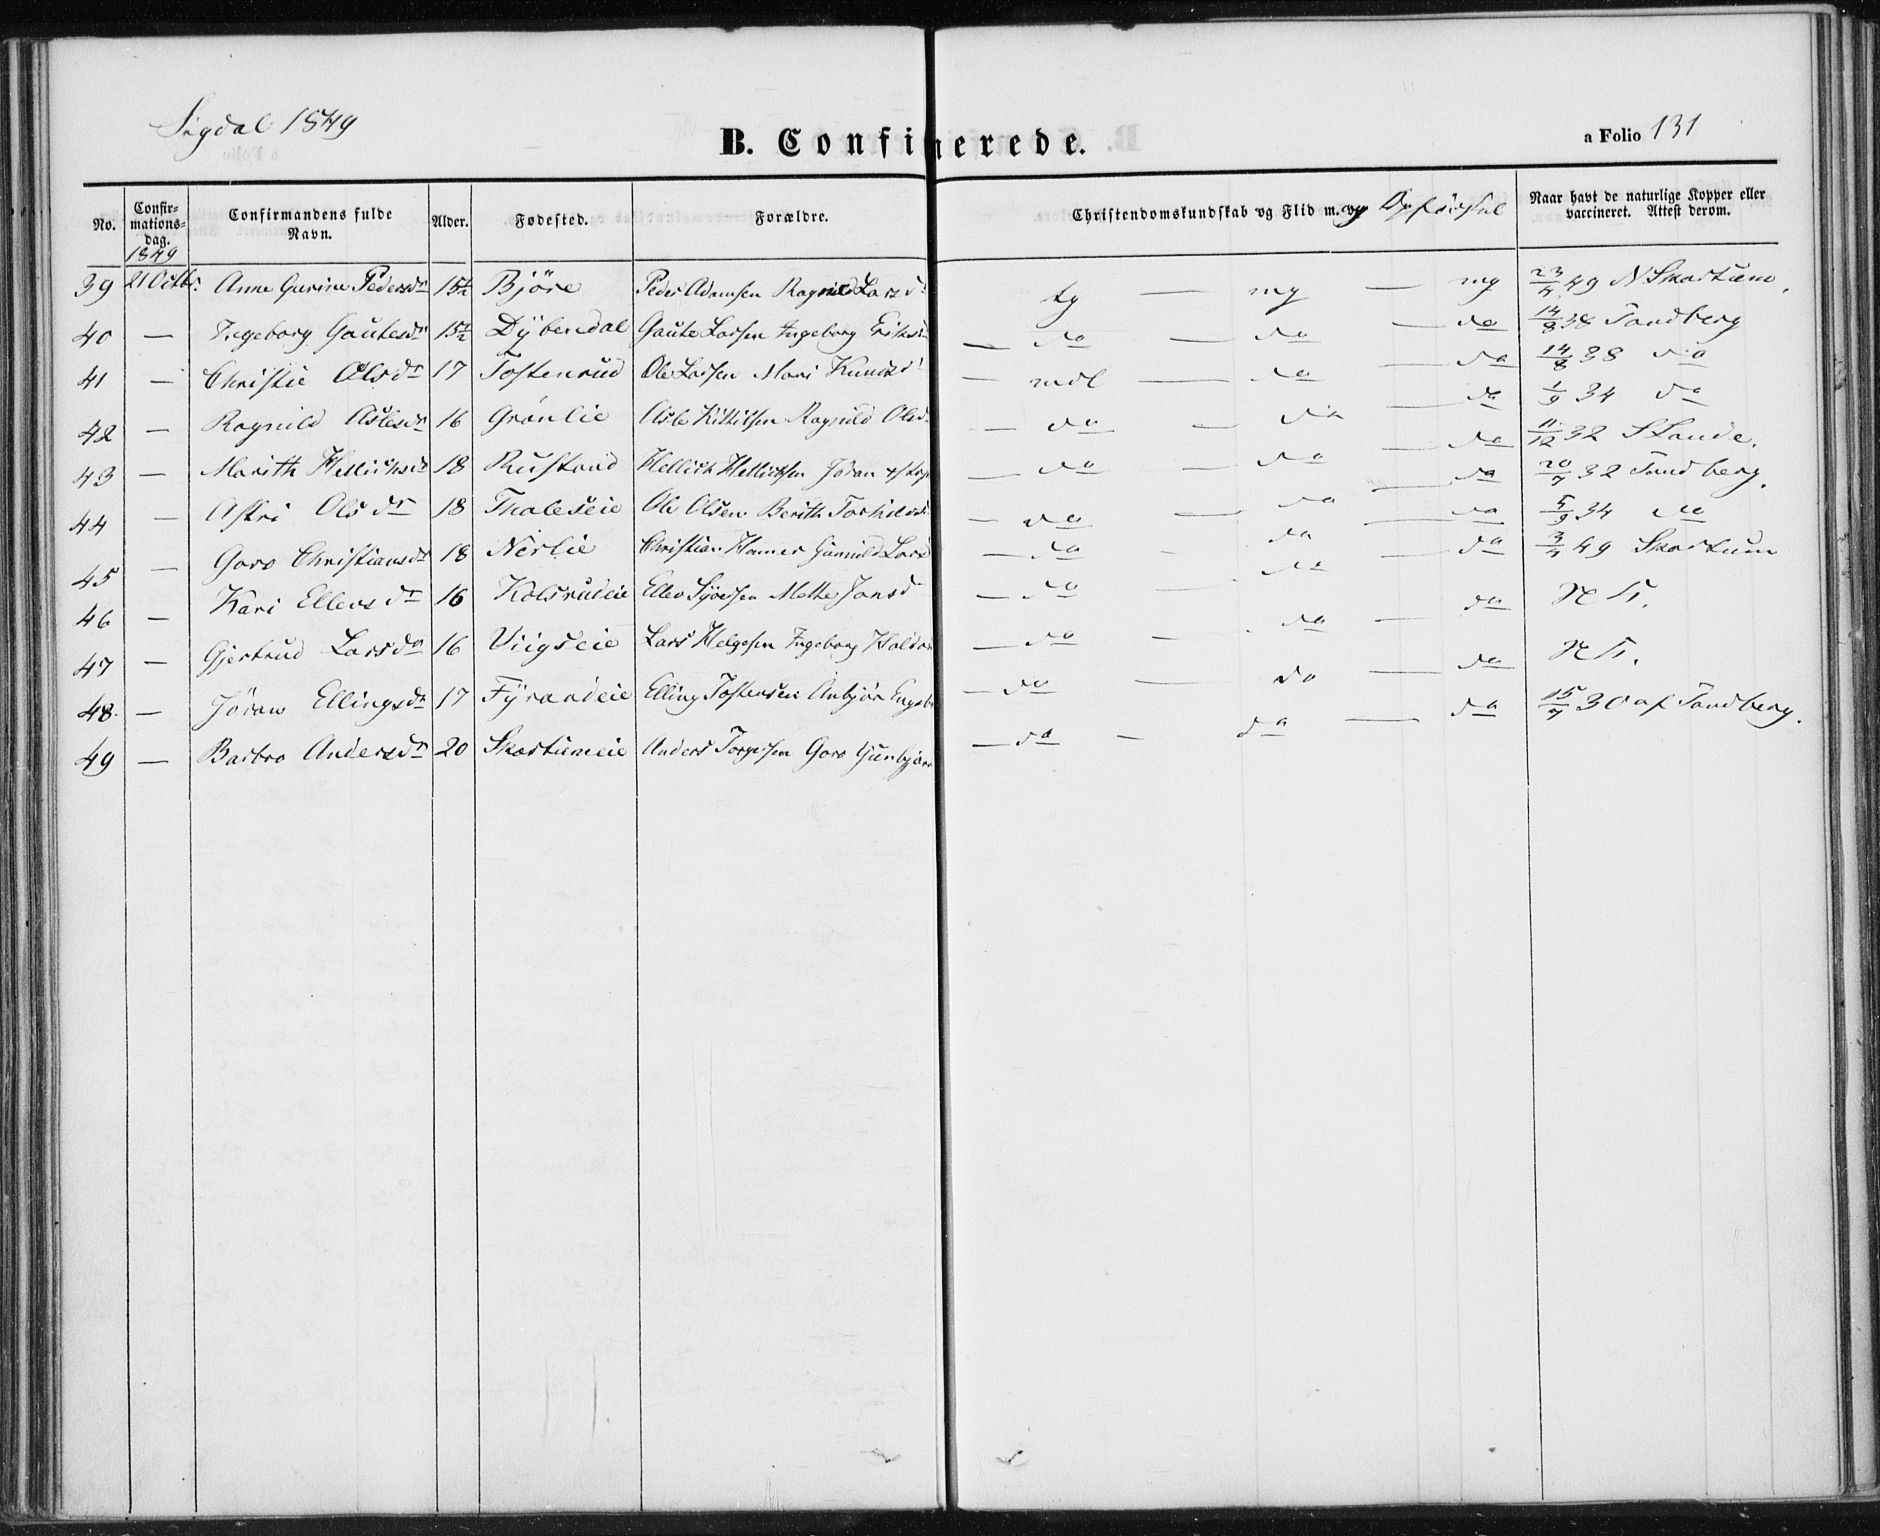 Sigdal 1849
B. Confirmerede.
a Folio 131
No. Confirmationsdag. Confirmandens fulde Navn. Alder. Fødested. Forældre. Christendomskundskab og Flid m. og Opførsel Naar havt de naturlige Kopper eller vaccineret. Attest derom.
1849
39 21 Octbr. Anne Gurine Pedersdr 15½ Björe Peder Adamsen Ragnild Larsd tg — mg — mg 23/4 49 N Skartum.
40 — Ingeborg Gautesdr 15½ Dybendal Gaute Larsen Ingeborg Eriksd — do — do — do 14/8 38 Sandberg
41 — Christie Olsdr 17 Tostenrud Ole Larsen Mari Knudsd — mdl — do — do 14/8 38 do
42 — Ragnild Aslesdr 16 Grønlie Asle Kittilsen Ragnild Olsd — do — do — do 1/9 34 do
43 — Marith Hellichsdr 18 Rustand Hellich Hellichsen Jöran — do — do — do 11/12 32 S Lande.
44 — Astri Olsdr 18 Thaleseie Ole Olsen Berith — do — do — do 20/7 32 Sandberg.
45 — Goro Christiansdr 18 Nerlie Christian Hamer Gunnild Larsd — do — do — do 5/9 34 do
46 — Kari Ellevsdr 16 Kolsrudeie Ellev Syversen Mette Jonsd — do — do — do 3/4 49 Skartum
47 — Gjertrud Larsdr 16 Viigseie Lars Helgesen Ingeborg — do — do — do N S.
48. — Jöran Ellingsdr 17 Fyrandeie Elling Tostensen Anbjör — do — do — do N S.
49 — Barbro Andersdr 20 Skartumeie Anders Torgersen Goro Gunbjörn — do — do — do 15/7 30 af Sandberg.